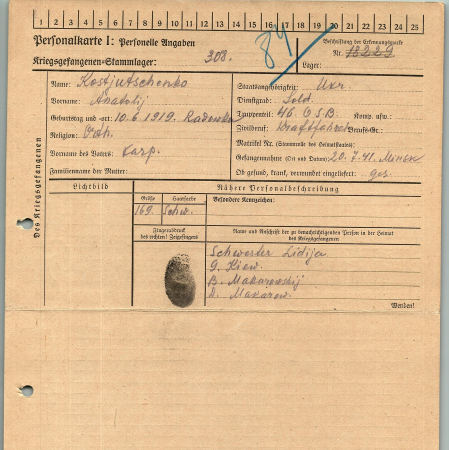 1 2 3 4 5 6 7 8 9 10 11 12 13 14 15 16 17 18 19 20 21 22 23 24 25
Personalkarte I: Personelle Angaben
84
Beschriftung der Erkennungsmarke
Kriegsgefangenen-Stammlager: 308.
Nr. 18229
Lager:
Des Kriegsgefangenen
Name: Kostjutschenko
Staatsangehörigkeit: Ukr.
Vorname: Anatolij
Dienstgrad: Sold.
Geburtstag und -ort: 10.6.1919. Radowka
Truppenteil: 46. O.S.B. Komp. usw.:
Religion: Orth.
Zivilberuf: Kraftfahrer Berufs-Gr.:
Matrikel Nr. (Stammrolle des Heimatstaates):
Vorname des Vaters: Karp.
Gefangennahme (Ort und Datum): 20.7.41. Minsk
Familienname der Mutter:
Ob gesund, krank, verwundet eingeliefert: ges
Lichtbild
Nähere Personalbeschreibung
Größe
Haarfarbe
Besondere Kennzeichen:
169.
Schw.
Fingerabdruck
des rechten! Zeigefingers
Name und Anschrift der zu benachrichtigenden Person in der Heimat
des Kriegsgefangenen
Schwester Lidija
G. Kiew.
B. Makarowskij
D. Makarow.
Wenden!